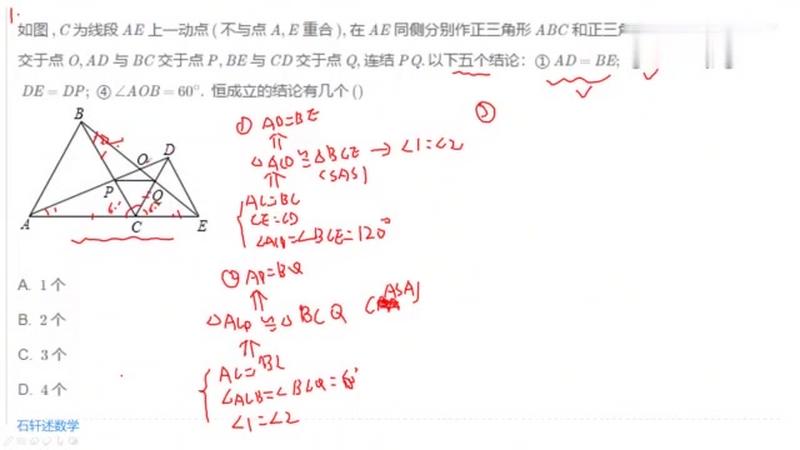 1.
如图, C为线段 AE 上一动点(不与点 A, E 重合), 在 AE 同侧分别作正三角形 ABC 和正三角
交于点 O, AD 与 BC 交于点 P, BE 与 CD 交于点 Q, 连结 PQ. 以下五个结论: ① AD = BE;
DE = DP; ④ ∠AOB = 60°. 恒成立的结论有几个 ()
B
O
D
P
Q
A
C
E
① AD=BE
⇑
△ACD ≌ △BCE → ∠1=∠2
(SAS)
⇑
AC=BC
CE=CD
∠ACD=∠BCE=120°
② AP=BQ
⇑
△ACP ≌ △BCQ (ASA)
⇑
AC=BC
∠ACB=∠BCQ=60°
∠1=∠2
③
A. 1个
B. 2个
C. 3个
D. 4个
石轩述数学